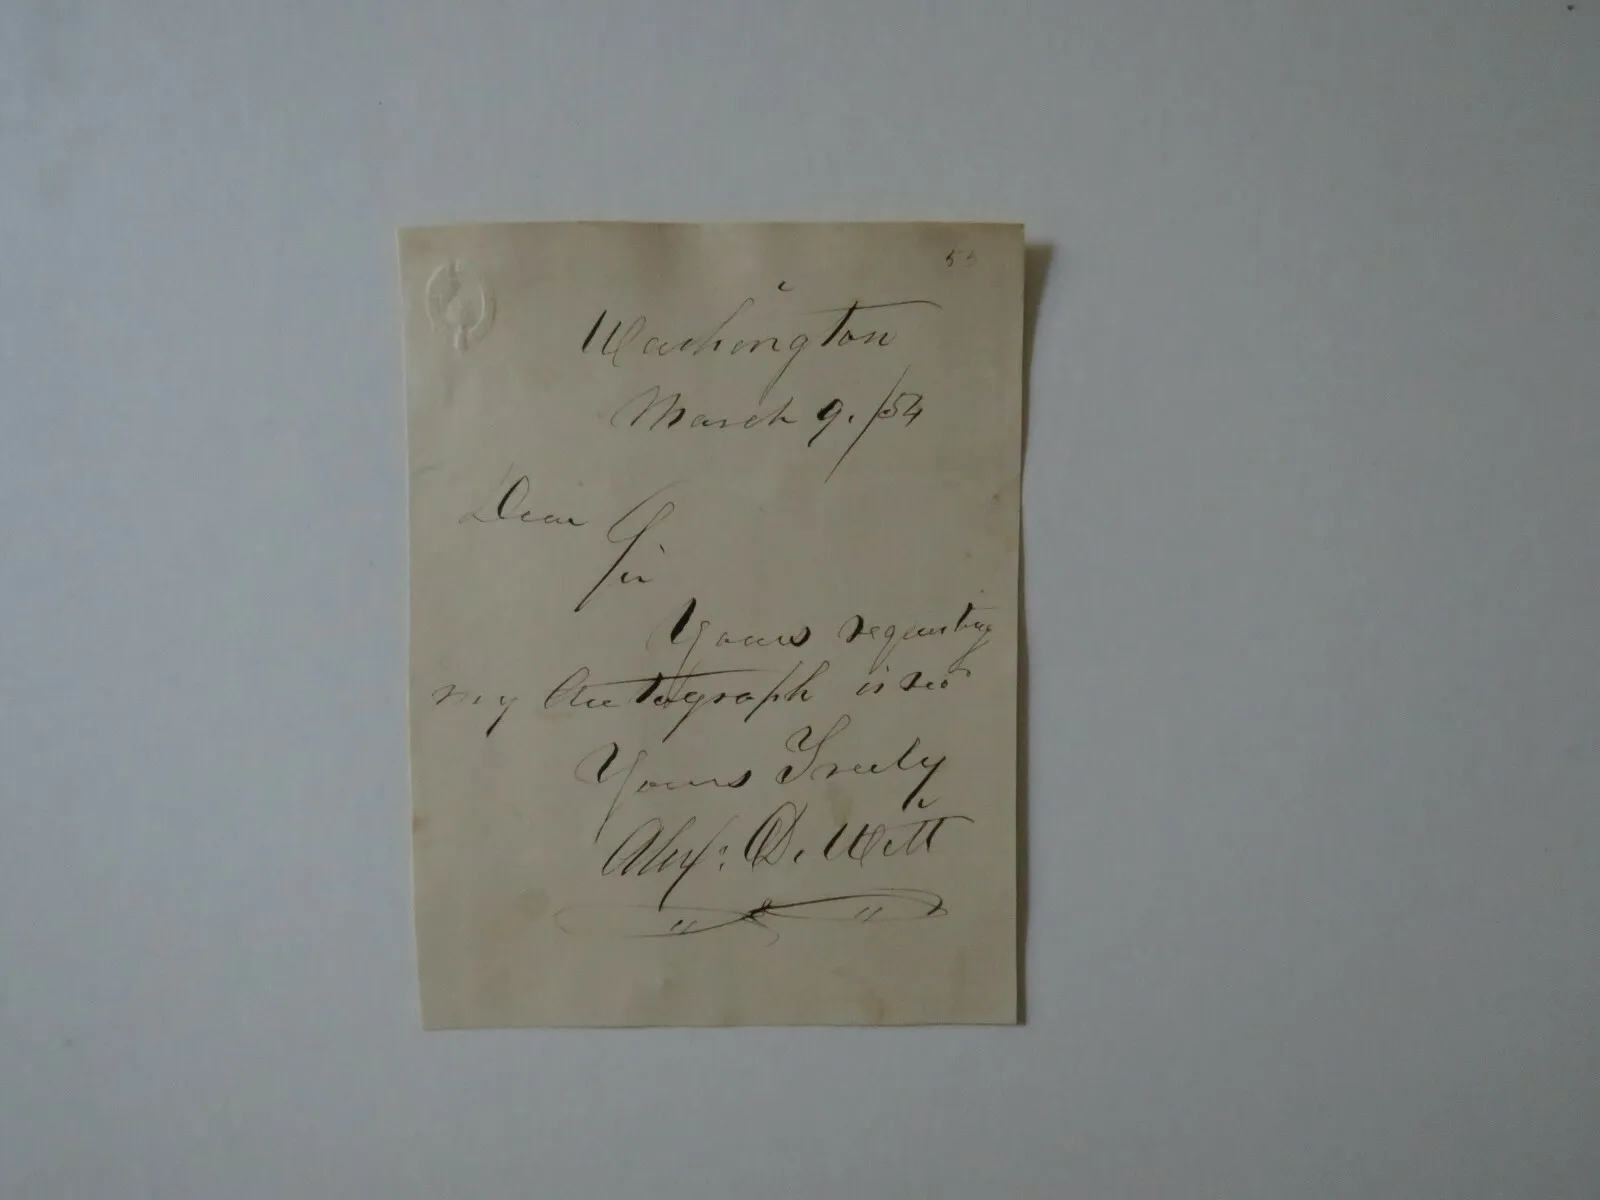 55
Washington
March 9. /54
Dear
Sir
Yours requesting
my Autograph is recd
Yours Truly
Alexr: De Witt